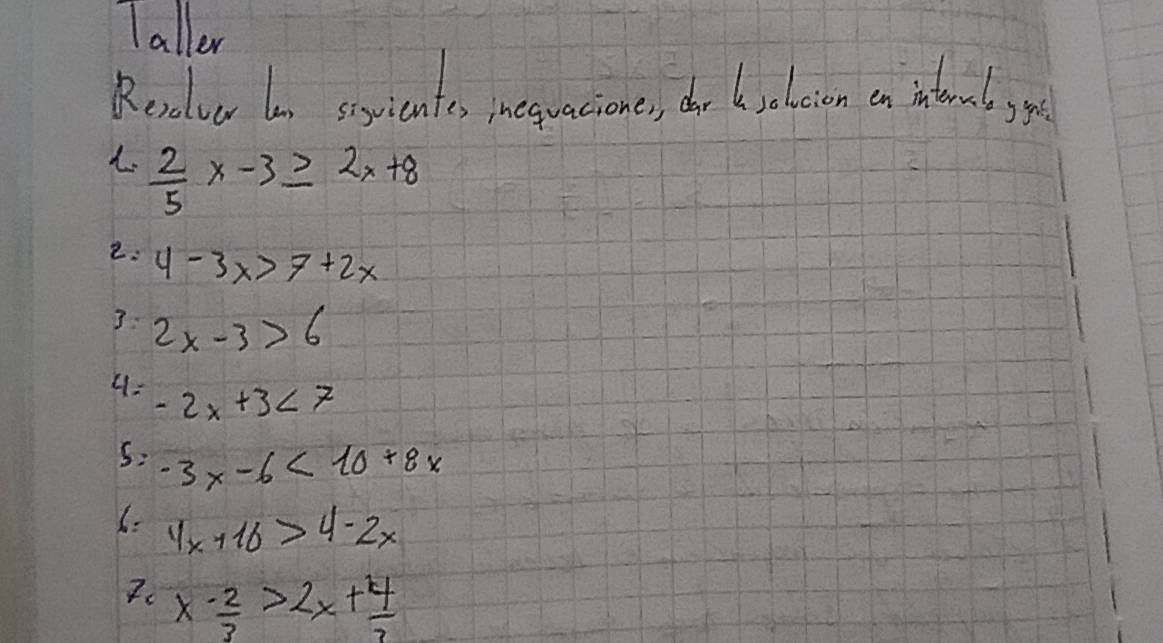 Taller
Resolver las siguientes inequaciones, dar la solucion en intervalo y
1. 2/5 x - 3 ≥ 2x + 8
2. 4 - 3x > 7 + 2x
3. 2x - 3 > 6
4. -2x + 3 < 7
5. -3x - 6 < 10 + 8x
6. 4x + 16 > 4 - 2x
7. x - 2/3 > 2x + 4/3